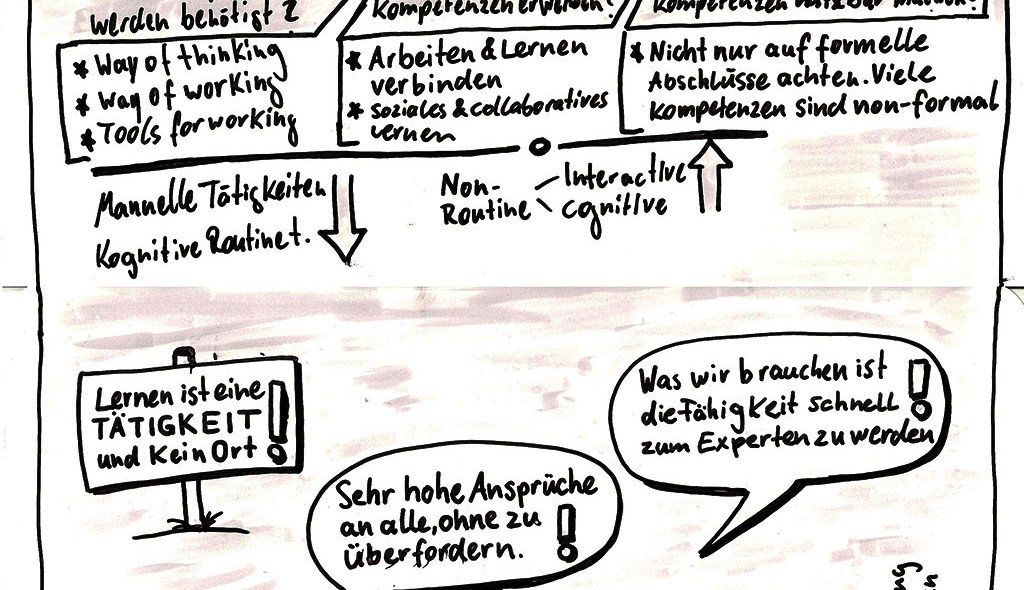 werden benötigt?
* Way of thinking
* Way of working
* Tools for working
Kompetenzen erwerben?
* Arbeiten & Lernen
verbinden
* soziales & collaboratives
Lernen
Kompetenzen
* Nicht nur auf formelle
Abschlüsse achten. Viele
Kompetenzen sind non-formal
Mannelle Tätigkeiten
Kognitive Routinet.
Non-
Routine
Interactive
cognitive
Lernen ist eine
TÄTIGKEIT
und kein Ort!
Sehr hohe Ansprüche
an alle, ohne zu
überfordern.!
Was wir brauchen ist
die Fähigkeit schnell
zum Experten zu werden!